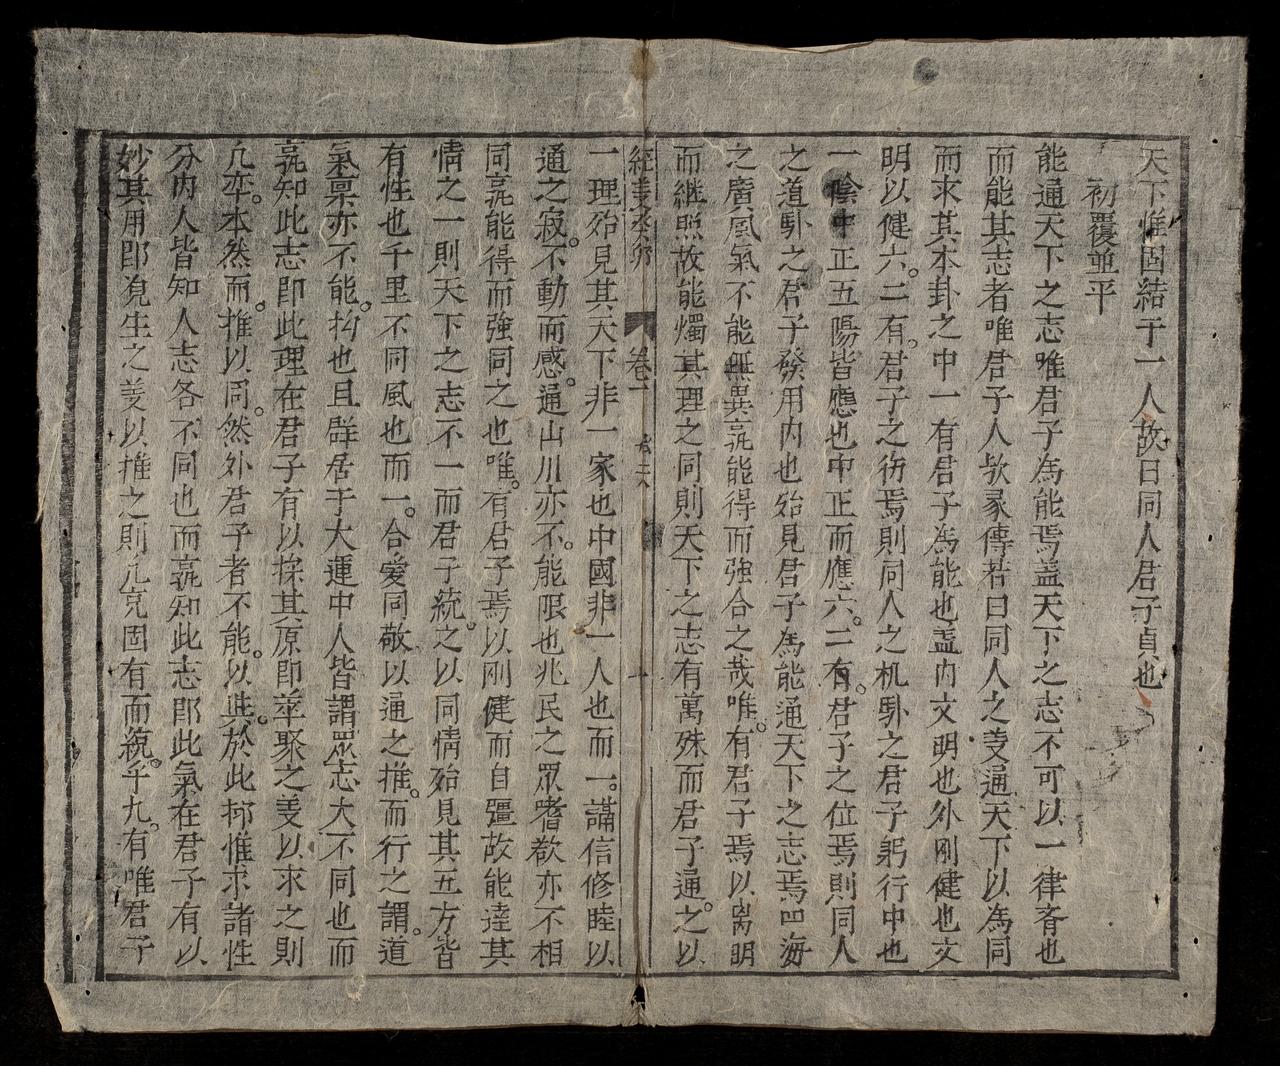 天下惟固結于一人故曰同人君子貞也
初覆並平
能通天下之志唯君子為能焉盖天下之志不可以一律齊也
而能其志者唯君子人欤彖傳若曰同人之義通天下以為同
而求其本卦之中一有君子為能也盖内文明也外刚健也文
明以健六。二有。君子之衔焉則同人之机卦之君子躬行中也
一陰中正五陽皆應也中正而應六。二有。君子之位焉則同人
之道卦之君子發用内也殆見君子為能通天下之志焉四海
之廣風氣不能無異孰能得而強合之哉唯。有君子焉以离明
而継照故能燭其理之同則天下之志有萬殊而君子通。之以
經義癸卯 卷一
一理殆見其天下非一家也中國非一人也而一。講信修睦以
通之寂。不動而感。通山川亦不。能限也兆民之眾嗜欲亦不相
同孰能得而強同之也唯。有君子焉以刚健而自彊故能達其
情之一則天下之志不一而君子統。之以同情殆見其五方皆
有性也千里不同風也而一。合愛同敬以通之推。而行之謂。道
氣禀亦不能。拘也且群居于大運中人皆謂眾志大不同也而
孰知此志即此理在君子有以探其原即萃聚之義以求之則
凢卒。本然而。推以同。然外君子者不能。以與。於此抑惟求諸性
分内人皆知人志各不同也而孰知此志即此氣在君子有以
妙其用即覌生之義以推之則凢宂固有而統。乎九。有唯君子